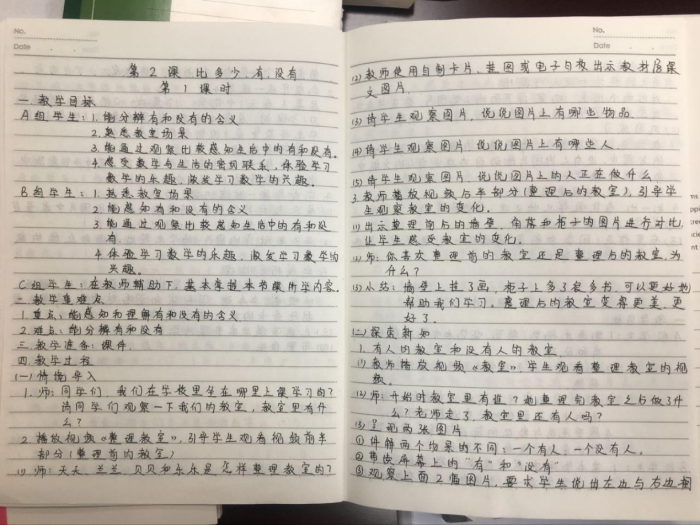 No.
Date
第2课 比多少,有,没有
第1课时
一.教学目标
A组学生:1.能分辨有和没有的含义
2.熟悉教室场景
3.能通过观察比较感知生活中的有和没有。
4.感受数学与生活的密切联系,体验学习
数学的乐趣,激发学习数学的兴趣。
B组学生:1.熟悉教室场景
2.能感知有和没有的含义
3.能通过观察比较感知生活中的有和没
有.
4.体验学习数学的乐趣,激发学习数学的
兴趣。
C组学生:在教师辅助下,基本掌握本节课所学内容。
二.教学重难点
1.重点:能感知和理解有和没有的含义
2.难点:能分辨有和没有
三.教学准备:课件
四.教学过程
(一)情境导入
1.师:同学们,我们在学校里坐在哪里上课学习的?
请同学们观察一下我们的教室,教室里有什
么?
2.播放视频《整理教室》,引导学生观看视频前半
部分(整理前的教室)
(1)师:天天、兰兰、贝贝和乐乐是怎样整理教室的?
No.
Date
(2)教师使用自制卡片、挂图或电子白板出示教材居家
文图片.
(3)请学生观察图片,说说图片上有哪些物品.
(4)请学生观察图片,说说图片上有哪些人.
(5)请学生观察图片,说说图片上的人正在做什么
3.教师播放视频后半部分(整理后的教室),引导学
生观察教室的变化。
(1)出示整理前后的墙壁、角落和柜子的图片进行对比,
让学生感受教室的变化。
(2)师:你喜欢整理前的教室还是整理后的教室,为
什么?
(3)小结:墙壁上挂了画,柜子上多了很多书,可以更好地
帮助我们学习。整理后的教室变得更美,更
好了.
(二)探索新知
1.有人的教室和没有人的教室
(1)教师播放视频《教室》,学生观看整理教室的视
频。
(2)师:开始时教室里有谁?她整理完教室之后做了什
么?老师走了,教室里还有人吗?
(3)呈现两张图片
①件辨两个场景的不同:一个有人,一个没有人。
②带读屏幕上的"有"和"没有"
③观察上面2幅图片,要求学生说出左边与右边图